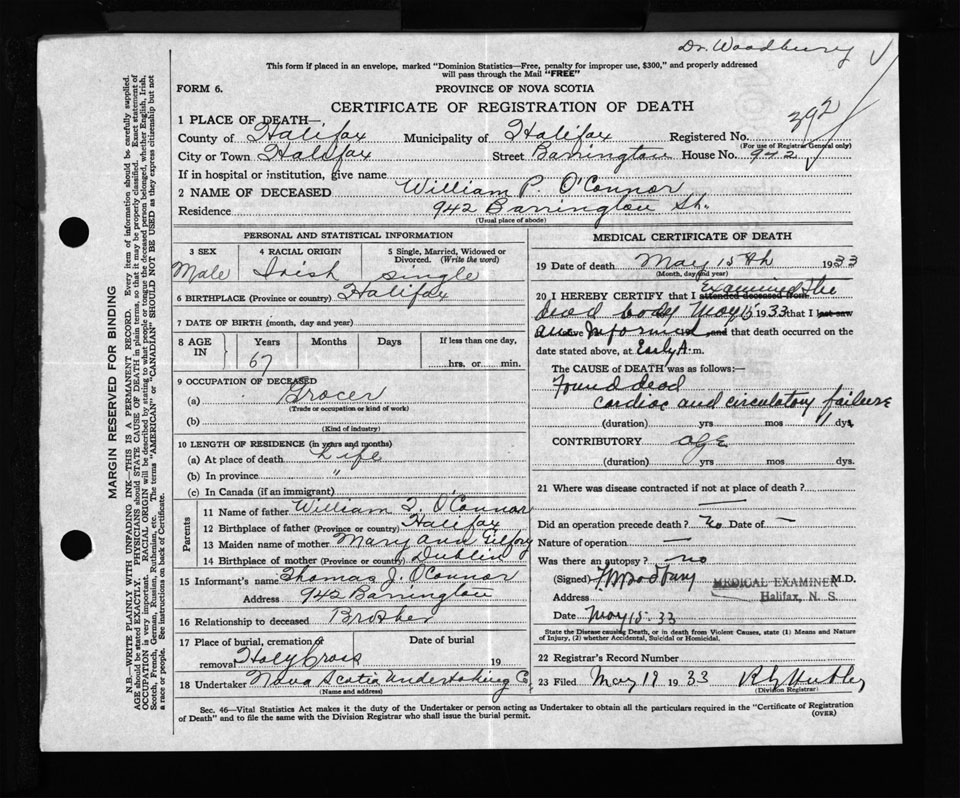 Dr. Woodbury
This form if placed in an envelope, marked "Dominion Statistics—Free, penalty for improper use, $300," and properly addressed
will pass through the Mail "FREE"
FORM 6.
PROVINCE OF NOVA SCOTIA
CERTIFICATE OF REGISTRATION OF DEATH
392
1 PLACE OF DEATH—
County of Halifax Municipality of Halifax Registered No.
(For use of Registrar General only)
City or Town Halifax Street Barrington House No. 942
If in hospital or institution, give name
2 NAME OF DECEASED William P. O'Connor
Residence 942 Barrington St.
(Usual place of abode)
PERSONAL AND STATISTICAL INFORMATION
3 SEX Male
4 RACIAL ORIGIN Irish
5 Single, Married, Widowed or
Divorced. (Write the word)
single
6 BIRTHPLACE (Province or country) Halifax
7 DATE OF BIRTH (month, day and year)
8 AGE IN Years Months Days If less than one day,
67 hrs. or min.
9 OCCUPATION OF DECEASED
(a) Grocer
(Trade or occupation or kind of work)
(b)
(Kind of industry)
10 LENGTH OF RESIDENCE (in years and months)
(a) At place of death Life
(b) In province "
(c) In Canada (if an immigrant)
Parents
11 Name of father William O'Connor
12 Birthplace of father (Province or country) Halifax
13 Maiden name of mother Mary Ann
14 Birthplace of mother (Province or country) Dublin
15 Informant's name Thomas J. O'Connor
Address 942 Barrington
16 Relationship to deceased Brother
17 Place of burial, cremation or
removal Holy Cross
Date of burial
19
18 Undertaker Nova Scotia Undertaking Co
(Name and address)
MEDICAL CERTIFICATE OF DEATH
19 Date of death May 15th 1933
(Month, day and year)
20 I HEREBY CERTIFY that I attended deceased from Examined the
dead body May 15 1933 that I last saw
alive Informed, and that death occurred on the
date stated above, at Early A. m.
The CAUSE of DEATH was as follows:
Found dead
cardiac and circulatory failure
(duration) yrs mos dys.
CONTRIBUTORY age
(duration) yrs mos. dys.
21 Where was disease contracted if not at place of death?
—
Did an operation precede death? No Date of —
Nature of operation —
Was there an autopsy? no
(Signed) M.D.
Address
MEDICAL EXAMINER
Halifax, N. S.
Date May 15. 33
State the Disease causing Death, or in death from Violent Causes, state (1) Means and Nature
of Injury, (2) whether Accidental, Suicidal or Homicidal.
22 Registrar's Record Number
23 Filed May 19 1933
(Division Registrar)
Sec. 46—Vital Statistics Act makes it the duty of the Undertaker or person acting as Undertaker to obtain all the particulars required in the "Certificate of Registration
of Death" and to file the same with the Division Registrar who shall issue the burial permit.
(OVER)
MARGIN RESERVED FOR BINDING
N.B.—WRITE PLAINLY WITH UNFADING INK—THIS IS A PERMANENT RECORD. Every item of information should be carefully supplied.
AGE should be stated EXACTLY. PHYSICIANS should STATE CAUSE OF DEATH in plain terms, so that it may be properly classified. Exact statement of
OCCUPATION is very important. RACIAL ORIGIN will be described by stating to what people or tongue the deceased person belonged, whether English, Irish,
Scotch, French, German, Russian, Ruthenian, etc. The terms "AMERICAN" or "CANADIAN" SHOULD NOT BE USED as they express citizenship but not
a race or people. See instructions on back of Certificate.